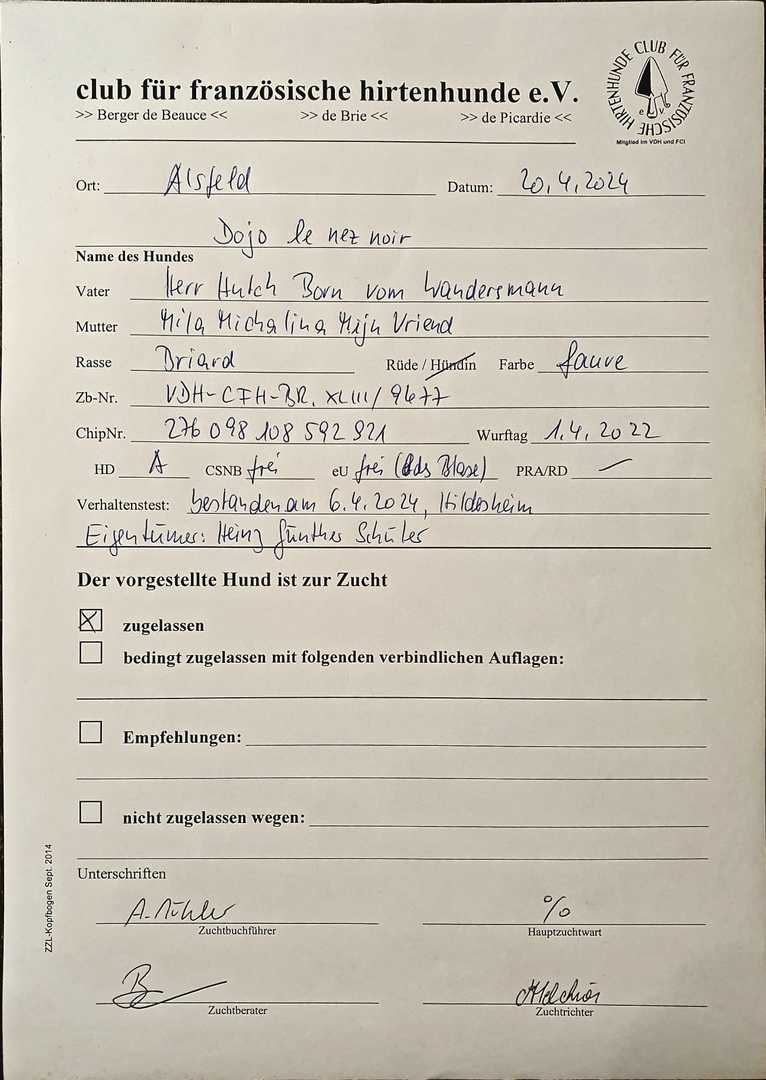 club für französische hirtenhunde e.V.
>> Berger de Beauce << >> de Brie << >> de Picardie <<
CLUB FÜR FRANZÖSISCHE HIRTENHUNDE
e.V.
Mitglied im VDH und FCI
Ort: Alsfeld Datum: 20.4.2024
Dojo le nez noir
Name des Hundes
Vater Herr Hutch Born vom Wandersmann
Mutter Mila Michalina Mijn Vriend
Rasse Briard Rüde / Hündin Farbe fauve
Zb-Nr. VDH-CFH-BR. XLIII/9677
ChipNr. 276 098 108 592 921 Wurftag 1.4.2022
HD A CSNB frei eU frei (bds Blase) PRA/RD —
Verhaltenstest: bestanden am 6.4.2024, Hildesheim
Eigentümer: Heinz Günther Schüler
Der vorgestellte Hund ist zur Zucht
☒ zugelassen
☐ bedingt zugelassen mit folgenden verbindlichen Auflagen:
☐ Empfehlungen:
☐ nicht zugelassen wegen:
Unterschriften
%
Zuchtbuchführer Hauptzuchtwart
Melchior
Zuchtberater Zuchtrichter
ZZL-Kopfbogen Sept. 2014